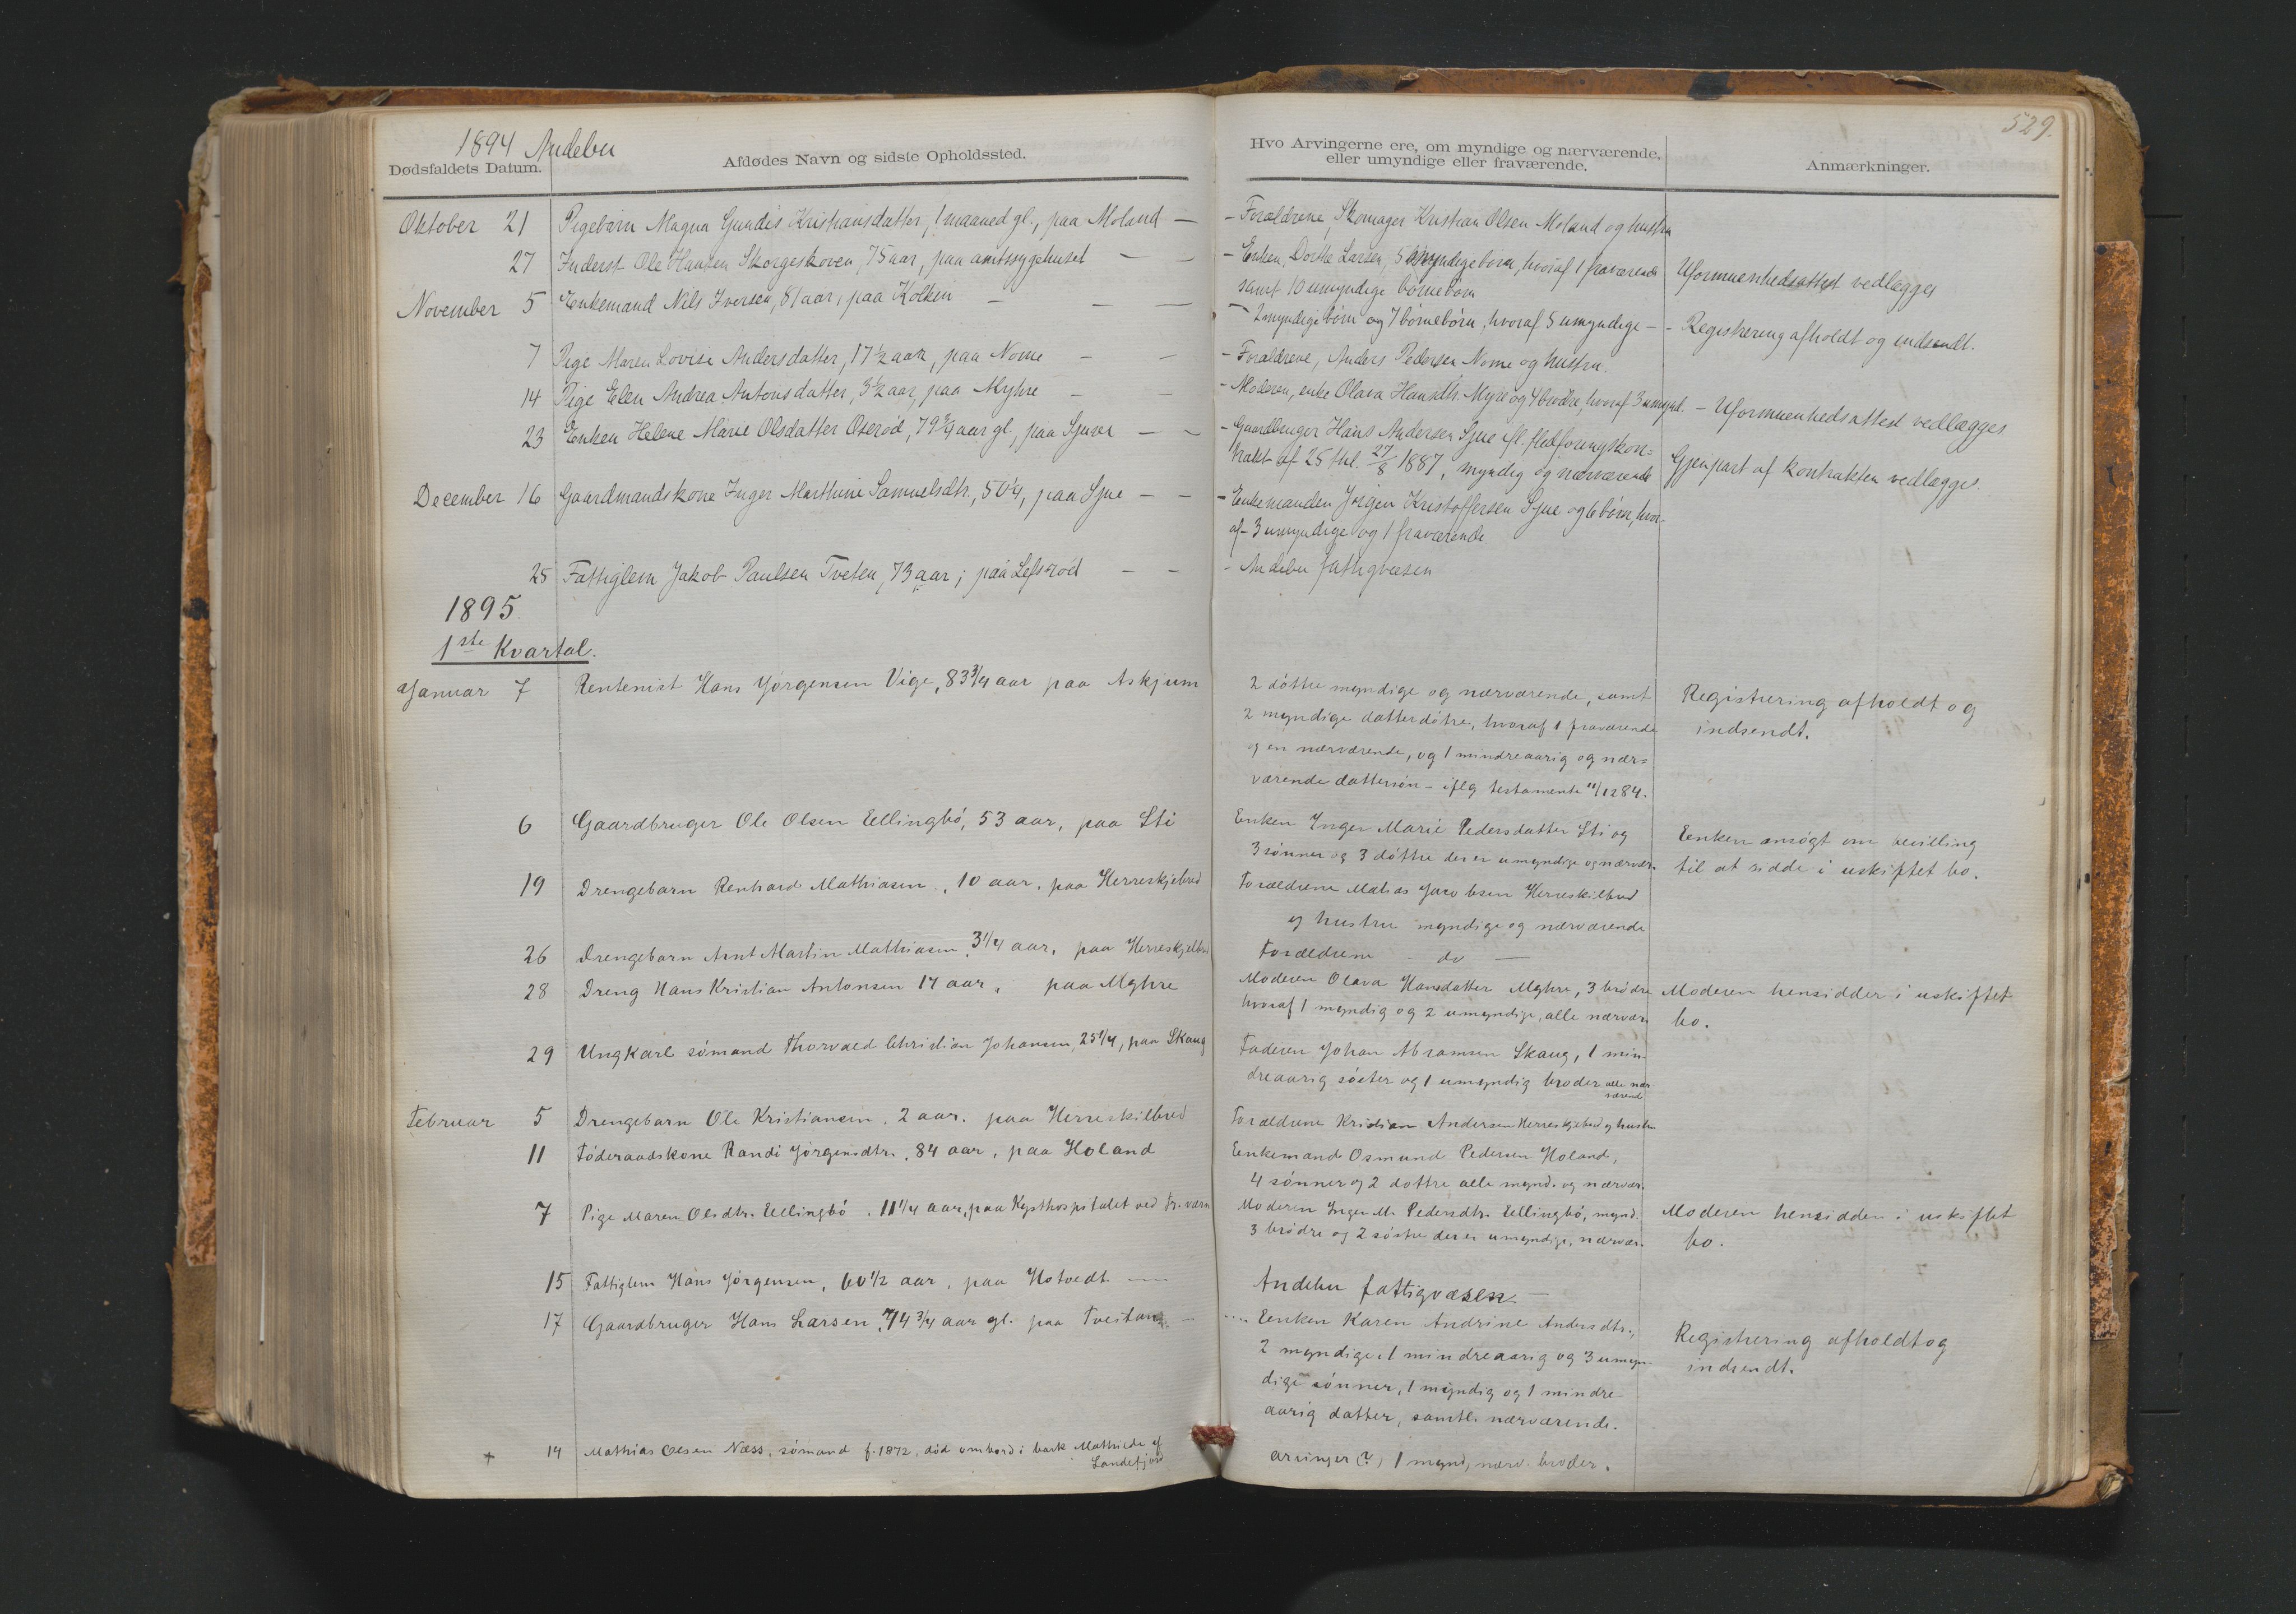 1894 Andebu
Dødsfaldets Datum.
Afdødes Navn og sidste Opholdssted.
Oktober 21 Pigebarn Magna Gundis Kristiansdatter, 1 maaned gl., paa Moland —
27 Inderst Ole Hansen Skorgeskoven, 75 aar, paa amtssygehuset — —
November 5 Enkemand Nils Iversen, 81 aar, paa Kolkin — — —
7 Pige Maren Lovise Andersdatter, 17 1/2 aar, paa Nome — —
14 Pige Elen Andrea Antonsdatter, 3 1/2 aar, paa Myhre — —
23 Enken Helene Marie Olsdatter Oserød, 79 3/4 aar gl., paa Sjuer — —
December 16 Gaardmandskone Inger Marthine Samuelsdtr., 50 1/4, paa Sjue — —
25 Fattiglem Jakob Paulsen Tveten, 73 aar; paa Lefsrød — —
1895.
1ste Kvartal.
Januar 7 Rentenist Hans Jørgensen Vige, 83 3/4 aar paa Askjum
6 Gaardbruger Ole Olsen Ellingbó, 53 aar, paa Sti
19 Drengebarn Renhard Mathiasen, 10 aar, paa Herreskjebred
26 Drengebarn Arnt Martin Mathiasen, 3 1/4 aar, paa Herreskjelbred
28 Dreng Hans Kristian Antonsen 17 aar, paa Myhre
29 Ungkarl sómand Thorvald Christian Johansen, 25 1/4, paa Skaug
Februar 5 Drengebarn Ole Kristiansen, 2 aar. paa Herreskilbred
11 Fóderaadskone Randi Jórgensdtr., 84 aar, paa Holand
7 Pige Maren Olsdtr. Ellingbó, 11 1/4 aar, paa Kysthospitalet ved Fr.værn
15 Fattiglem Hans Jórgensen, 60 1/2 aar, paa Hotvedt —
17 Gaardbruger Hans Larsen, 74 3/4 aar gl. paa Tveitan —
+ 14 Mathias Olsen Næss, sómand f. 1872, dód ombord i bark Mathilde af
Sandefjord
529.
Hvo Arvingerne ere, om myndige og nærværende,
eller umyndige eller fraværende.
Anmærkninger.
– Forældrene, Skomager Kristian Olsen Moland og hustru
– Enken, Dorthe Larsen, 5 myndige børn, hvoraf 1 fraværende
samt 10 umyndige børnebørn
Uformuenhedsattest vedlægges
– 2 myndige børn og 7 børnebørn, hvoraf 5 umyndige – – Registrering afholdt og indsendt.
– Forældrene, Anders Pedersen Nome og hustru.
– Moderen, enke Olava Hansdtr. Myre og 4 brødre, hvoraf 3 umynd. – Uformuenhedsattest vedlægges
– Gaardbruger Hans Andersen Sjue ifl. fledføringskon=
trakt af 25 thl. 27/8 1887, myndig og nærværende
Gjenpart af kontrakten vedlægges.
– Enkemanden Jørgen Kristoffersen Sjue og 6 børn, hvor-
af 3 umyndige og 1 fraværende
– Andebu fattigvæsen
2 dóttre myndige og nærværende, samt
2 myndige datterdótre, hvoraf 1 fraværende
og en nærværende, og 1 mindreaarig og nær=
værende dattersón – iflg testamente 11/12 84.
Registrering afholdt og
indsendt.
Enken Inger Marie Pedersdatter Sti og
3 sónner og 3 dóttre der er umyndige og nærvær.
Enken ansógt om bevilling
til at sidde i uskiftet bo.
Forældrene Matias Jacobsen Herreskilbred
og hustru myndige og nærværende
Forældrene – do —
Moderen Olava Hansdatter Myhre, 3 bródre
hvoraf 1 myndig og 2 umyndige, alle nærvær.
Moderen hensidder i uskiftet
bo.
Faderen Johan Abramsen Skaug, 1 min-
dreaarig sóster og 1 umyndig broder alle nær
værende
Forældrene Kristian Andersen Herreskjebred og hustru
Enkemand Osmund Pedersen Holand,
4 sónner og 2 dottre alle mynd. og nærvær.
Moderen Inger M. Pedersdtr. Ellingbó, mynd.
3 bródre og 2 sóstre der er umyndige, nærvær.
Moderen hensidder i uskiftet
bo.
Andebu fattigvæsen. —
Enken Karen Andrine Andersdtr.,
2 myndige, 1 mindreaarig og 3 umyn-
dige sónner, 1 myndig og 1 mindre-
aarig datter, samtl. nærværende.
Registrering afholdt og
indsendt.
arvinger (?) 1 mynd, nærv. broder.